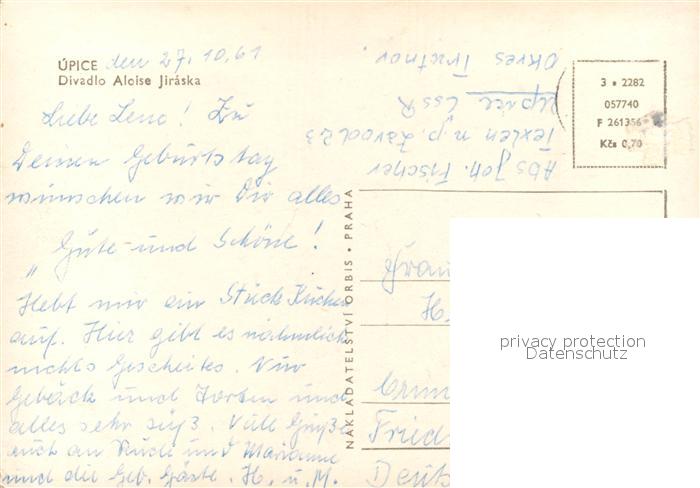 ÚPICE den 27.10.61
Divadlo Aloise Jiráska
Liebe Lene! Zu
Deinem Geburtstag
wünschen wir Dir alles
" Gute und Schöne!
Hebt mir ein Stück Kuchen
auf. Hier gibt es nähmlich
nichts Gescheites. Nur
Gebäck und Torten und
alles sehr süß. Viele Grüße
auch an Rudi und Marianne
und die Geb. Gäste. H. u. M.
Abs. Joh. Fischer
Texlen n. p. Závod 23
Úpice ČSSR
Okres Trutnov.
3 • 2282
057740
F 261356
Kčs 0,70
NAKLADATELSTVÍ ORBIS · PRAHA
Frau
H.
Fried
Deut
privacy protection
Datenschutz